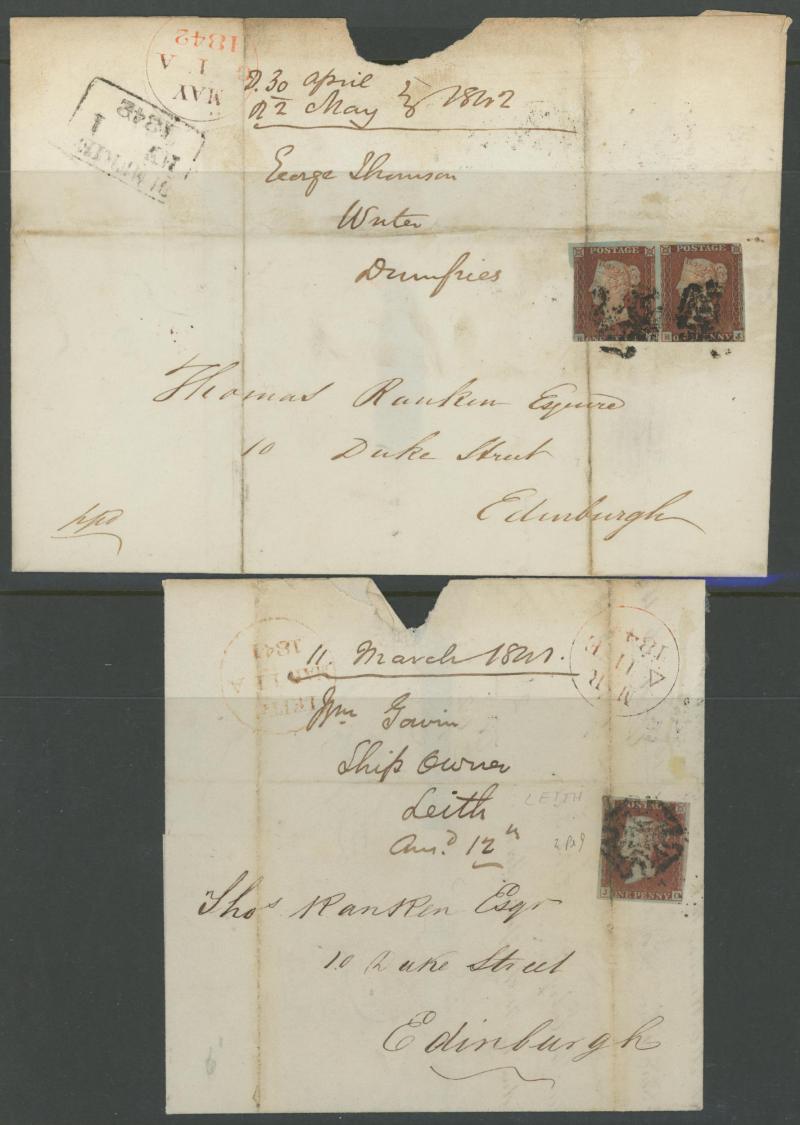 MAY
1 A
1842
MY
1
1842
D. 30 April
R 2 May 1842
George Thomson
Writer
Dumfries
POSTAGE POSTAGE
Thomas Ranken Esquire
10 Duke Street
Edinburgh
ppd
LEITH
MAR 11 A
1841
MR
11
184
11. March 1841.
Wm Gavin
Ship Owner
Leith
LEITH
Ansd 12th
ONE PENNY
Thos Ranken Esqr
10 Duke Street
Edinburgh